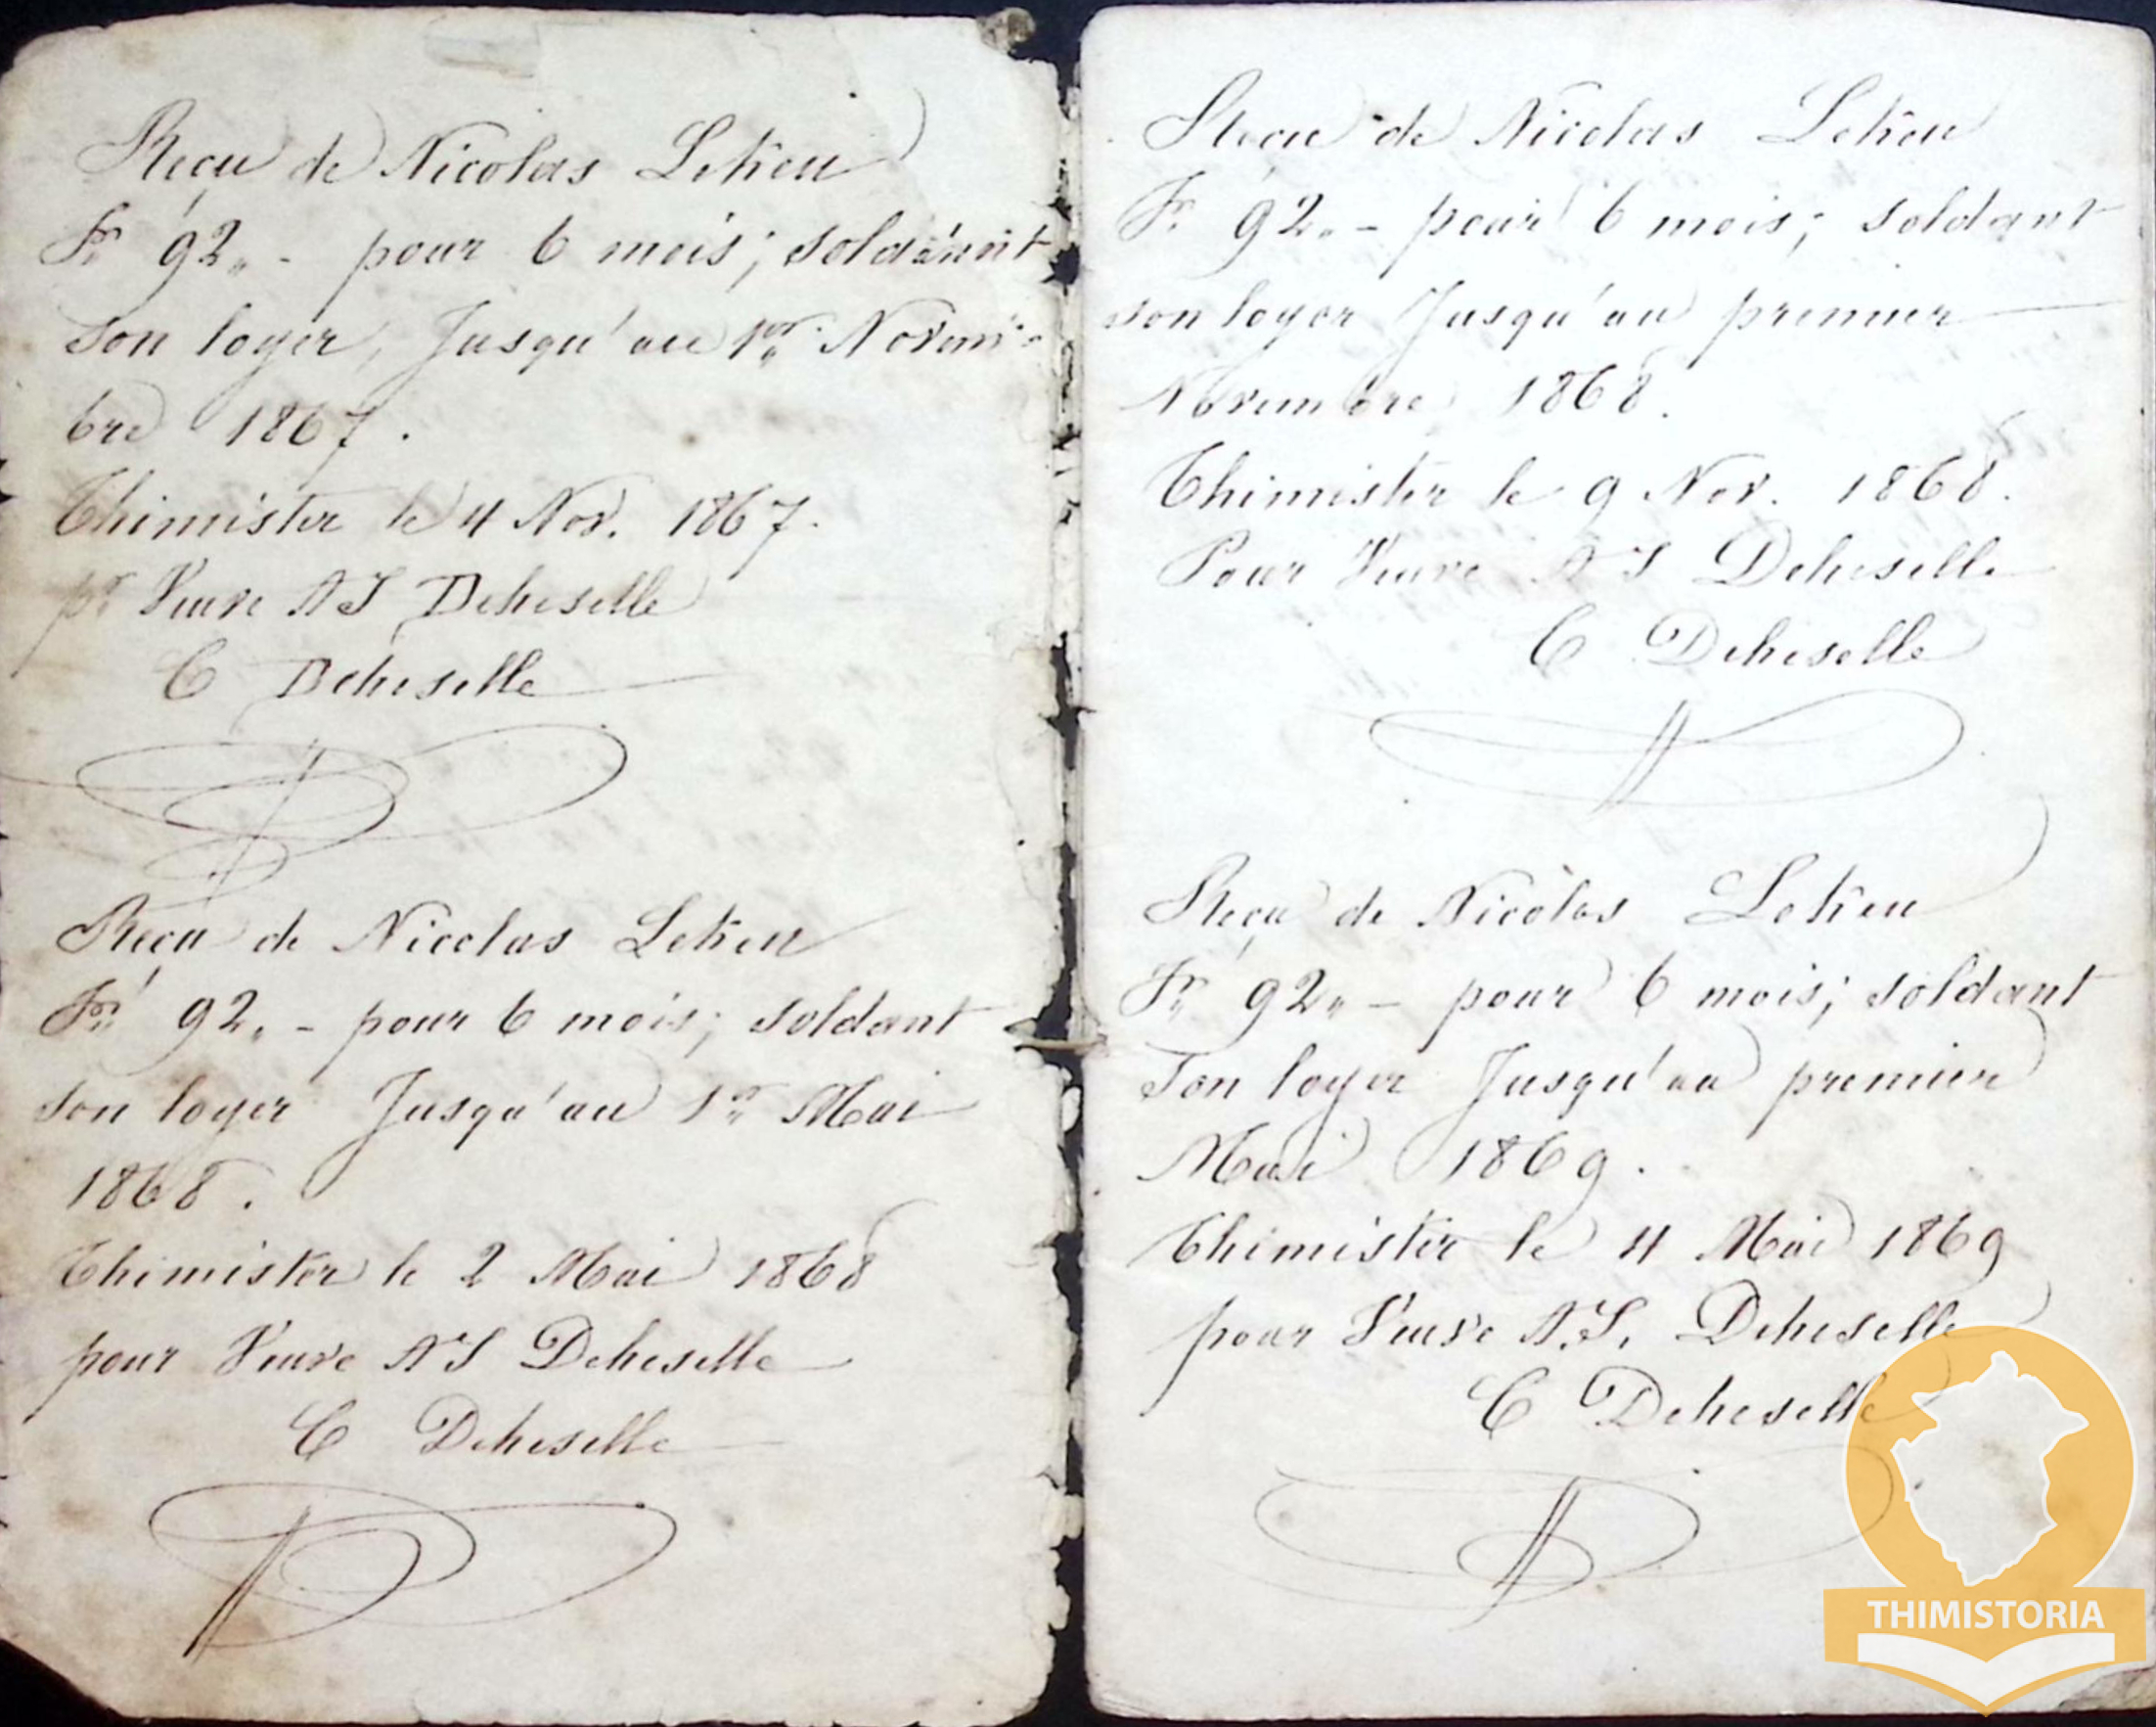 Reçu de Nicolas Lekeu
Fr. 92,, - pour 6 mois; soldant
son loyer, Jusqu'au 1er Novem-
bre 1867.
Thimister le 4 Nov. 1867.
pr Veuve AJ Deheselle
C Deheselle
Reçu de Nicolas Lekeu
Fr. 92,, - pour 6 mois; soldant
son loyer Jusqu'au 1er Mai
1868.
Thimister le 2 Mai 1868
pour Veuve AJ Deheselle
C Deheselle
Reçu de Nicolas Lekeu
Fr. 92,, - pour 6 mois; soldant
son loyer Jusqu'au premier
Novembre 1868.
Thimister le 9 Nov. 1868.
Pour Veuve AJ Deheselle
C Deheselle
Reçu de Nicolas Lekeu
Fr. 92,, - pour 6 mois; soldant
son loyer Jusqu'au premier
Mai 1869.
Thimister le 4 Mai 1869
pour Veuve A.J. Deheselle
C Deheselle
THIMISTORIA